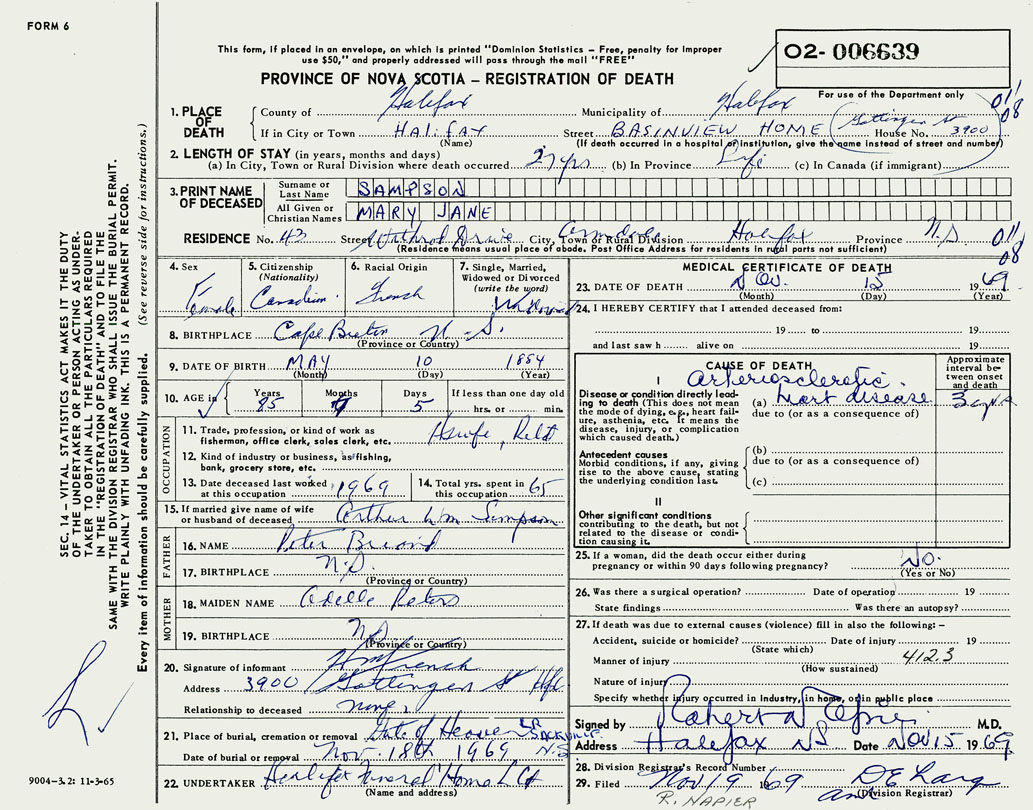 FORM 6
This form, if placed in an envelope, on which is printed "Dominion Statistics – Free, penalty for improper
use $50," and properly addressed will pass through the mail "FREE"
PROVINCE OF NOVA SCOTIA – REGISTRATION OF DEATH
02- 006639
For use of the Department only
1. PLACE OF DEATH
County of Halifax Municipality of Halifax
If in City or Town HALIFAX Street BASINVIEW HOME House No. 3900 Gottingen St
(Name) (If death occurred in a hospital or institution, give the name instead of street and number)
011
08
2. LENGTH OF STAY (in years, months and days)
(a) In City, Town or Rural Division where death occurred 27 yrs (b) In Province Life (c) In Canada (if immigrant)
3. PRINT NAME OF DECEASED
Surname or Last Name SAMPSON
All Given or Christian Names MARY JANE
RESIDENCE No. 43 Street Drive City, Town or Rural Division Armdale Halifax Province N.S
(Residence means usual place of abode. Post Office Address for residents in rural parts not sufficient)
011
08
4. Sex Female
5. Citizenship (Nationality) Canadian
6. Racial Origin French
7. Single, Married, Widowed or Divorced (write the word) Widowed
8. BIRTHPLACE Cape Breton N.S.
(Province or Country)
9. DATE OF BIRTH MAY 10 1884
(Month) (Day) (Year)
10. AGE in Years 85 Months Days 5 If less than one day old hrs. or min.
OCCUPATION
11. Trade, profession, or kind of work as fisherman, office clerk, sales clerk, etc. Hswfe, Retd
12. Kind of industry or business, as fishing, bank, grocery store, etc.
13. Date deceased last worked at this occupation 1969
14. Total yrs. spent in this occupation 65
15. If married give name of wife or husband of deceased Arthur Wm Sampson
FATHER
16. NAME Peter Briand
17. BIRTHPLACE N.S.
(Province or Country)
MOTHER
18. MAIDEN NAME Adelle Peters
19. BIRTHPLACE N.S.
(Province or Country)
20. Signature of informant French
Address 3900 Gottingen St Hfx
Relationship to deceased none
21. Place of burial, cremation or removal Gate of Heaven LR SACKVILLE N.S
Date of burial or removal Nov. 18th 1969
22. UNDERTAKER Halifax Funeral Home Ltd
(Name and address)
MEDICAL CERTIFICATE OF DEATH
23. DATE OF DEATH Nov. 15 1969
(Month) (Day) (Year)
24. I HEREBY CERTIFY that I attended deceased from:
19 to 19
and last saw h alive on 19
CAUSE OF DEATH
Approximate interval between onset and death
I
Disease or condition directly leading to death (This does not mean the mode of dying, e.g., heart failure, asthenia, etc. It means the disease, injury, or complication which caused death.)
arteriosclerotic
(a) heart disease 3 yrs
due to (or as a consequence of)
Antecedent causes
Morbid conditions, if any, giving rise to the above cause, stating the underlying condition last.
(b)
due to (or as a consequence of)
(c)
II
Other significant conditions
contributing to the death, but not related to the disease or condition causing it.
25. If a woman, did the death occur either during pregnancy or within 90 days following pregnancy? No.
(Yes or No)
26. Was there a surgical operation? Date of operation 19
State findings Was there an autopsy?
27. If death was due to external causes (violence) fill in also the following: –
Accident, suicide or homicide? Date of injury 19
(State which)
Manner of injury 412.3
(How sustained)
Nature of injury
Specify whether injury occurred in Industry, in home, or in public place
Signed by Robert M.D.
Address Halifax NS Date Nov 15 1969
28. Division Registrar's Record Number
29. Filed Nov 19 1969 D E Lang
(Division Registrar)
R. NAPIER
SEC. 14 – VITAL STATISTICS ACT MAKES IT THE DUTY
OF THE UNDERTAKER OR PERSON ACTING AS UNDER-
TAKER TO OBTAIN ALL THE PARTICULARS REQUIRED
IN THE "REGISTRATION OF DEATH" AND TO FILE THE
SAME WITH THE DIVISION REGISTRAR WHO SHALL ISSUE THE BURIAL PERMIT.
WRITE PLAINLY WITH UNFADING INK. THIS IS A PERMANENT RECORD.
Every item of information should be carefully supplied. (See reverse side for instructions.)
9004-3.2: 11-3-65